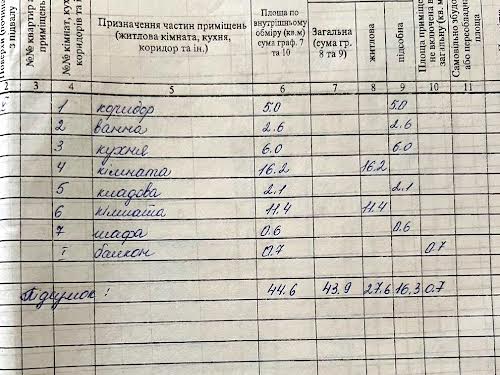 Поверхи починаючи
з підвалу
№№ квартир а
приміщень
№№ кімнат, кух
коридорів та і
Призначення частин приміщень
(житлова кімната, кухня,
коридор та ін.)
Площа по
внутрішньому
обміру (кв.м)
сума граф. 7
та 10
Загальна
(сума гр.
8 та 9)
житлова
підсобна
Площа приміщ
не включена в
загальну (кв. м
Самовільно збудо
або переобладна
площа
2 3 4 5 6 7 8 9 10 11
1 коридор 5.0 5.0
2 ванна 2.6 2.6
3 кухня 6.0 6.0
4 кімната 16.2 16.2
5 кладова 2.1 2.1
6 кімната 11.4 11.4
7 шафа 0.6 0.6
І балкон 0.7 0.7
Підсумок: 44.6 43.9 27.6 16.3 0.7